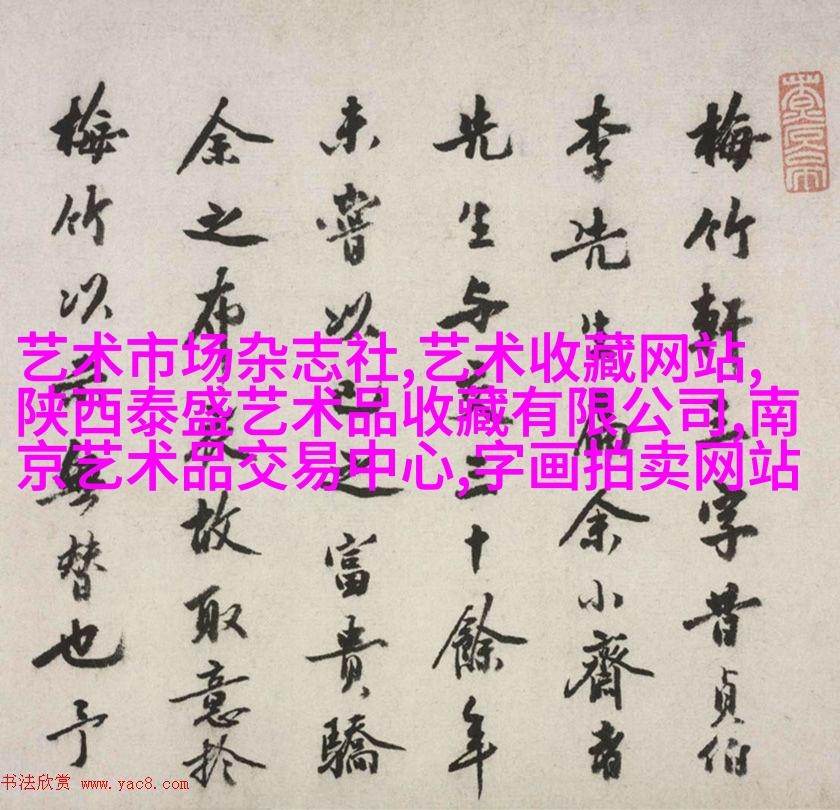 梅竹軒字昔貞伯
李先生余小齋者
先生与三十餘年
未嘗以之富貴驕
余之布故取意於
梅竹以無替也予
艺术市场杂志社,艺术收藏网站,
陕西泰盛艺术品收藏有限公司,南
京艺术品交易中心,字画拍卖网站
书法欣赏 www.yac8.com